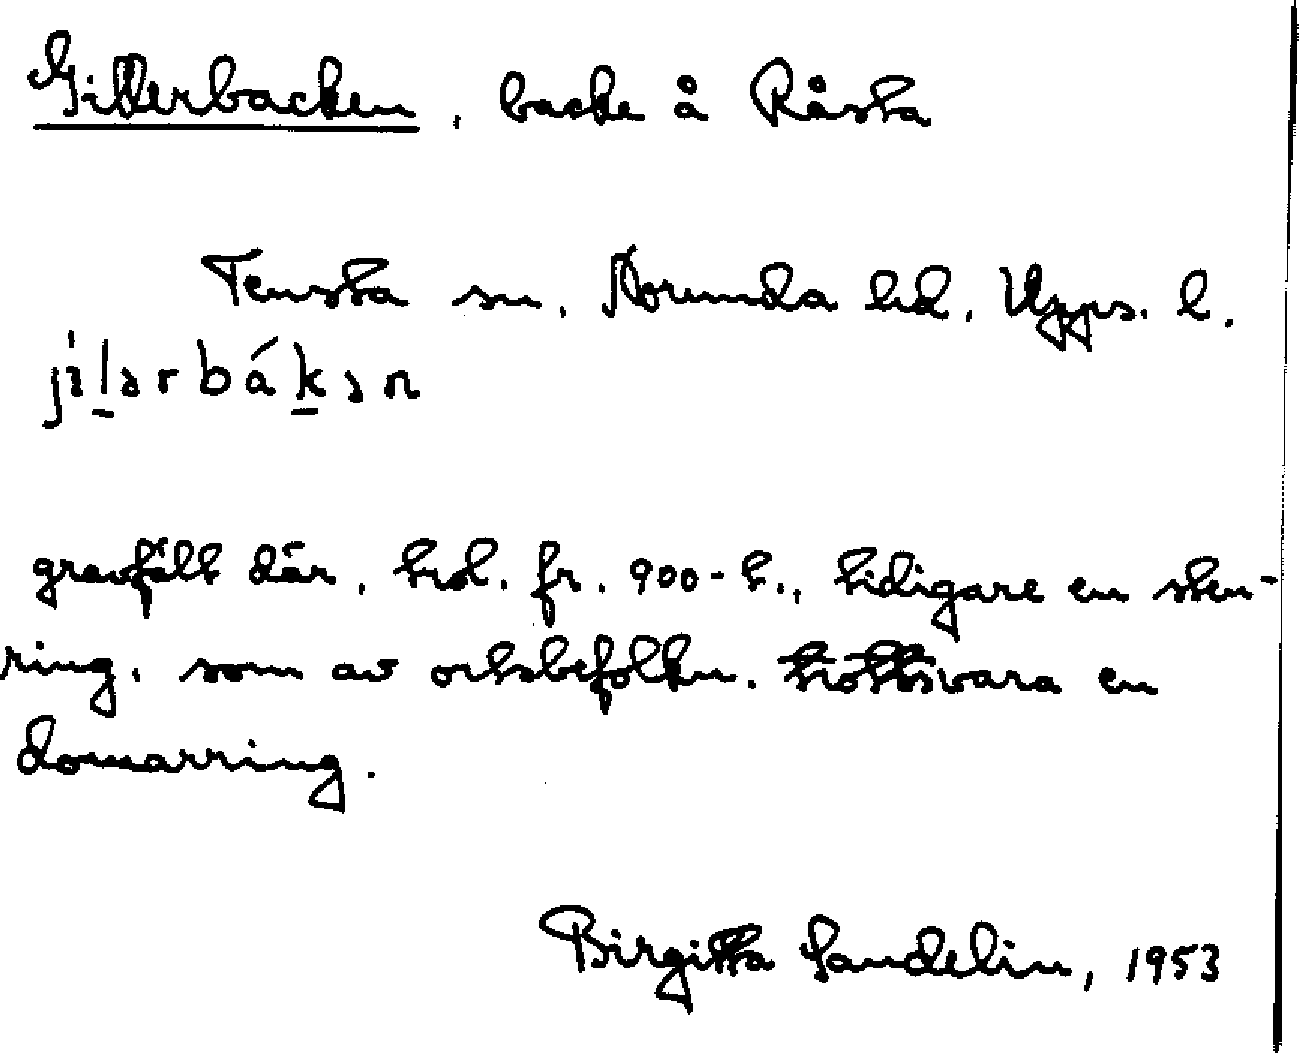 Gillerbacken, backe å Råsta
Tensta sn. Norunda hd. Upps. l.
jìlərbákən
gravfält där, trol. fr. 900-t., tidigare en sten-
ring, som av ortsbefolkn. trottsvara en
domarring.
Birgitta Sandelin, 1953